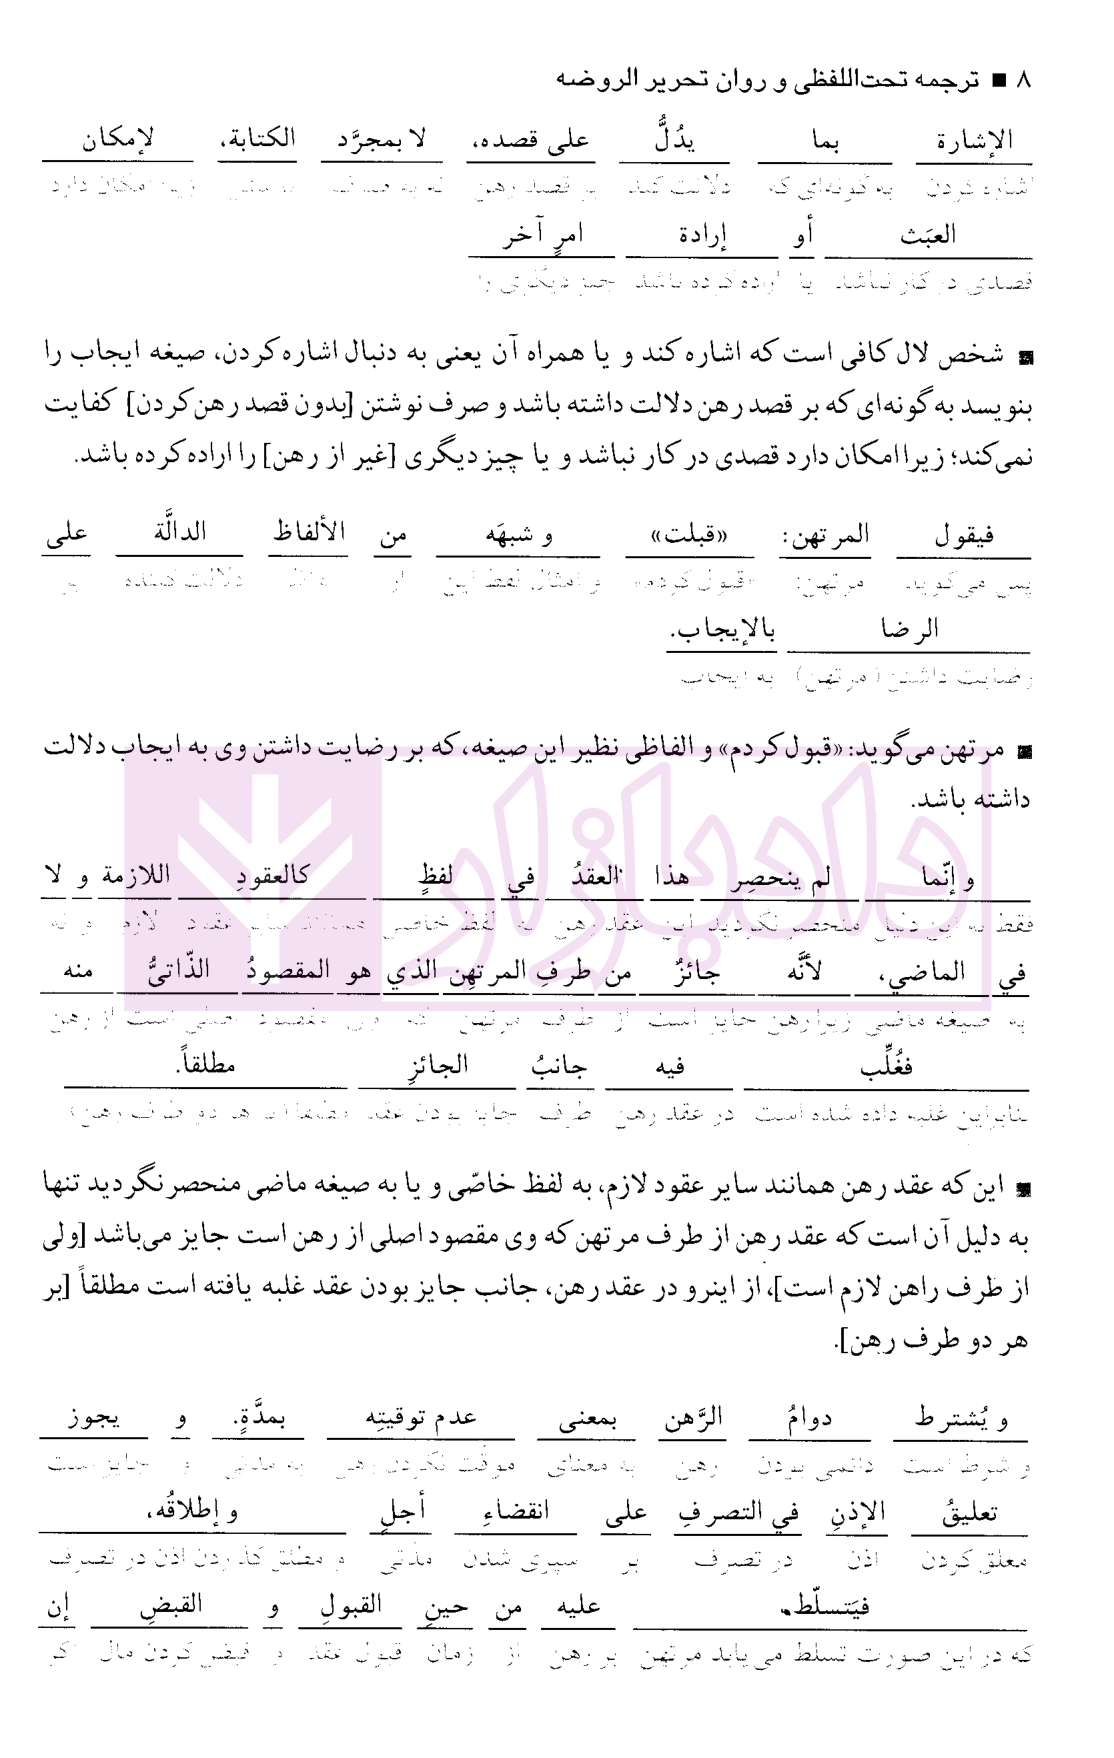 ۸ ■ ترجمه تحت‌اللفظی و روان تحریر الروضه
الإشارة بما یدُلُّ علی قصده، لا بمجرَّد الکتابة، لإمکان
اشاره کردن به گونه‌ای که دلالت کند بر قصد رهن نه به صرف نوشتن زیرا امکان دارد
العبَث أو إرادة امرٍ آخر
قصدی در کار نباشد یا اراده کرده باشد چیز دیگری را
■ شخص لال کافی است که اشاره کند و یا همراه آن یعنی به دنبال اشاره کردن، صیغه ایجاب را
بنویسد به گونه‌ای که بر قصد رهن دلالت داشته باشد و صرف نوشتن [بدون قصد رهن کردن] کفایت
نمی‌کند؛ زیرا امکان دارد قصدی در کار نباشد و یا چیز دیگری [غیر از رهن] را اراده کرده باشد.
فیقول المرتهن: «قبلت» و شبهَه من الألفاظ الدالَّة علی
پس می‌گوید مرتهن: «قبول کردم» و امثال لفظ این از الفاظ دلالت کننده بر
الرضا بالإیجاب.
رضایت داشتن (مرتهن) به ایجاب
■ مرتهن می‌گوید: «قبول کردم» و الفاظی نظیر این صیغه، که بر رضایت داشتن وی به ایجاب دلالت
داشته باشد.
دادبازار
و إنّما لم ینحصِر هذا العقدُ في لفظٍ کالعقودِ اللازمة و لا
فقط به این دلیل منحصر نگردید این عقد رهن به لفظ خاصی همانند سایر عقود لازم و نه
في الماضي، لأنَّه جائزٌ من طرفِ المرتهِن الذي هو المقصودُ الذّاتيُّ منه
به صیغه ماضی زیرا رهن جایز است از طرف مرتهن که وی مقصود اصلی است از رهن
فغُلِّب فیه جانبُ الجائزِ مطلقاً.
بنابراین غلبه داده شده است در عقد رهن طرف جایز بودن عقد مطلقاً هر دو طرف رهن
■ این که عقد رهن همانند سایر عقود لازم، به لفظ خاصّی و یا به صیغه ماضی منحصر نگردید تنها
به دلیل آن است که عقد رهن از طرف مرتهن که وی مقصود اصلی از رهن است جایز می‌باشد [ولی
از طرف راهن لازم است]، از اینرو در عقد رهن، جانب جایز بودن عقد غلبه یافته است مطلقاً [بر
هر دو طرف رهن].
و یُشترط دوامُ الرَّهن بمعنی عدم توقیتِه بمدَّةٍ. و یجوز
و شرط است دائمی بودن رهن به معنای موقّت نکردن رهن به مدتی و جایز است
تعلیقُ الإذنِ في التصرفِ علی انقضاءِ أجلٍ و إطلاقُه،
معلق کردن اذن در تصرف بر سپری شدن مدّتی و مطلق گذاردن اذن در تصرف
فیَتسلّط علیه من حینِ القبولِ و القبضِ إن
که در این صورت تسلط می‌یابد مرتهن بر رهن از زمان قبول عقد و قبض کردن مال اگر